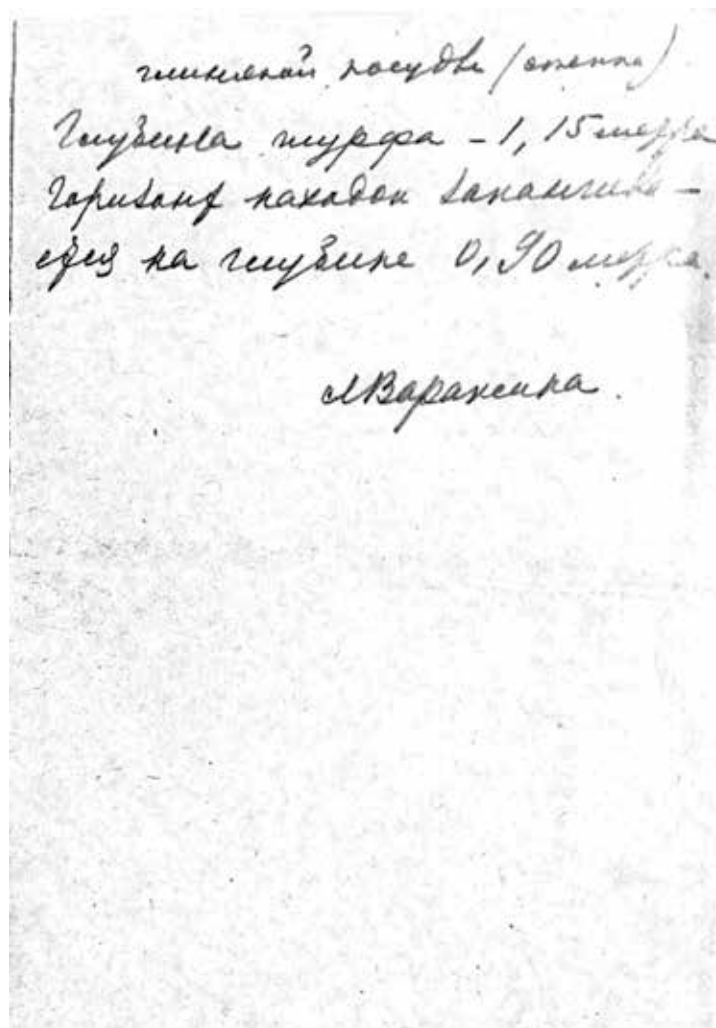 глиняной посуды (стенка)
Глубина шурфа – 1,15 метра
Горизонт находок заканчива-
ется на глубине 0,90 метра.
Л Вараксина.